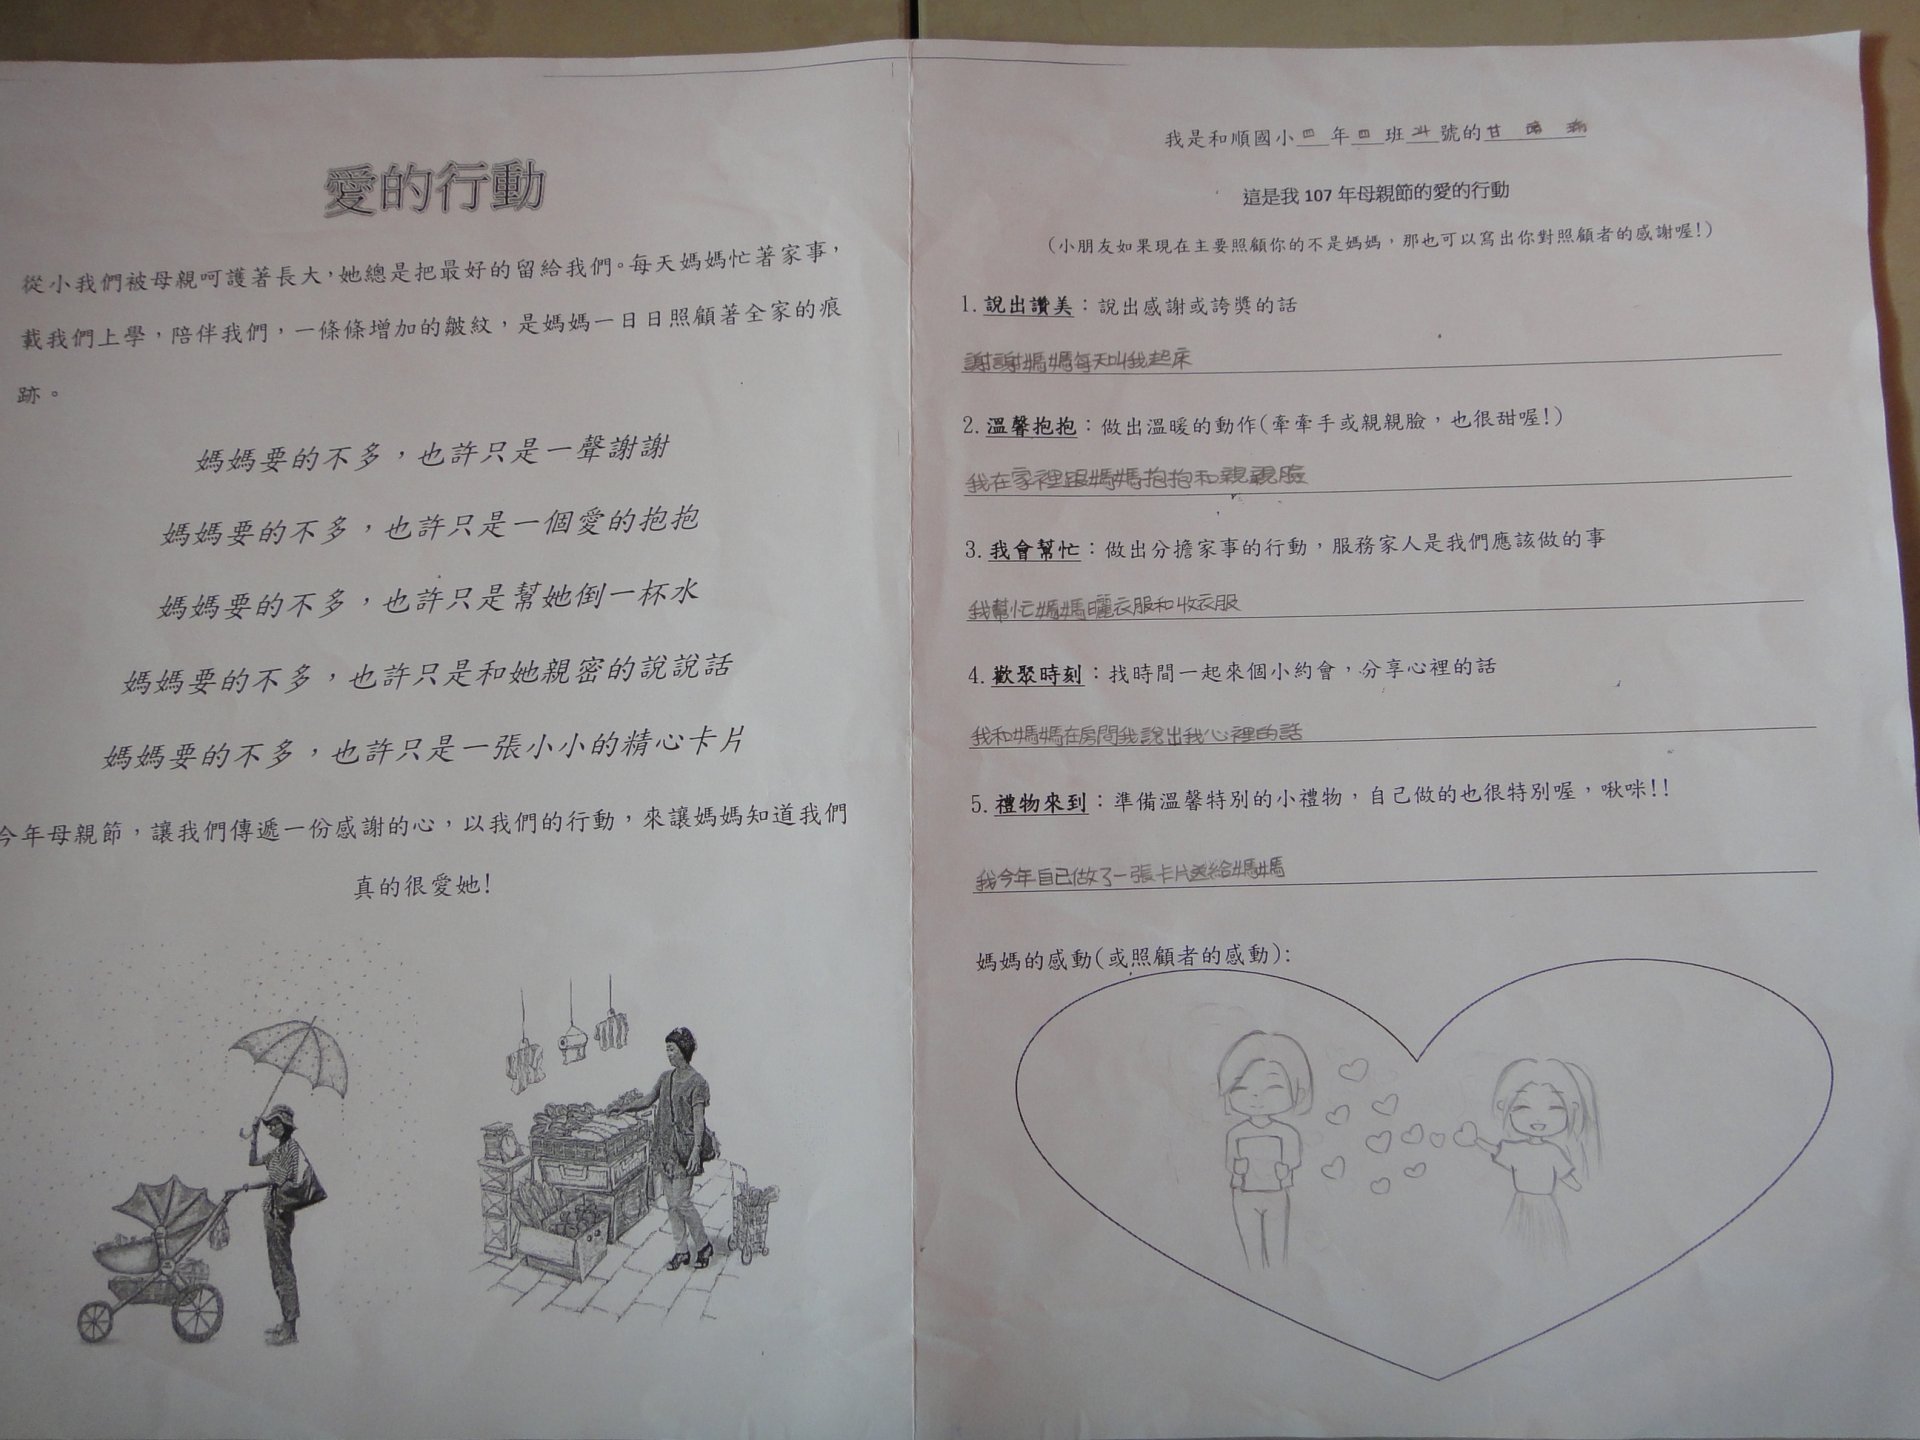 愛的行動
從小我們被母親呵護著長大,她總是把最好的留給我們。每天媽媽忙著家事,
載我們上學,陪伴我們,一條條增加的皺紋,是媽媽一日日照顧著全家的痕
跡。
媽媽要的不多,也許只是一聲謝謝
媽媽要的不多,也許只是一個愛的抱抱
媽媽要的不多,也許只是幫她倒一杯水
媽媽要的不多,也許只是和她親密的說說話
媽媽要的不多,也許只是一張小小的精心卡片
今年母親節,讓我們傳遞一份感謝的心,以我們的行動,來讓媽媽知道我們
真的很愛她!
我是和順國小四年四班24號的甘
這是我107年母親節的愛的行動
(小朋友如果現在主要照顧你的不是媽媽,那也可以寫出你對照顧者的感謝喔!)
1.說出讚美:說出感謝或誇獎的話
謝謝媽媽每天叫我起床
2.溫馨抱抱:做出溫暖的動作(牽牽手或親親臉,也很甜喔!)
我在家裡跟媽媽抱抱和親親臉
3.我會幫忙:做出分擔家事的行動,服務家人是我們應該做的事
我幫忙媽媽曬衣服和收衣服
4.歡聚時刻:找時間一起來個小約會,分享心裡的話
我和媽媽在房間我說出我心裡的話
5.禮物來到:準備溫馨特別的小禮物,自己做的也很特別喔,啾咪!!
我今年自己做了一張卡片送給媽媽
媽媽的感動(或照顧者的感動):